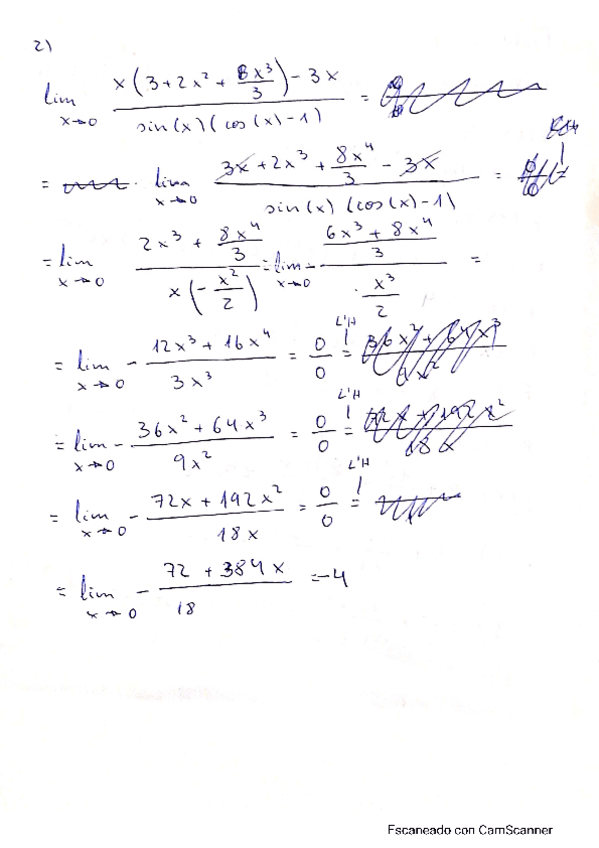 2)
lim x→0 x(3+2x²+8x³/3)-3x / sin(x)(cos(x)-1) =
= lim x→0 3x+2x³+8x⁴/3-3x / sin(x)(cos(x)-1) =
= lim x→0 2x³+8x⁴/3 / x(-x²/2) = lim x→0 - 6x³+8x⁴/3 / x³/2 =
= lim x→0 - 12x³+16x⁴ / 3x³ = 0/0 = L'H
= lim x→0 - 36x²+64x³ / 9x² = 0/0 = L'H
= lim x→0 - 72x+192x² / 18x = 0/0 = L'H
= lim x→0 - 72+384x / 18 = -4
Escaneado con CamScanner